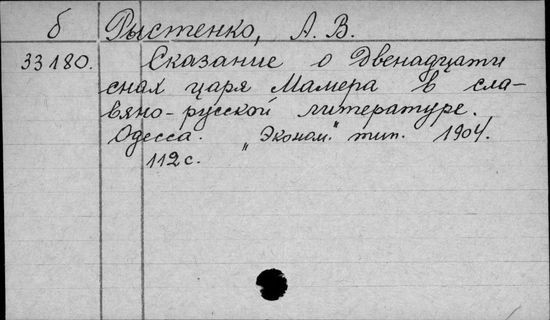 б Рыстенко, А. В.
33180. Сказание о Двенадцати
снах царя Мамера в сла-
вяно-русской литературе.
Одесса. „Эконом." тип. 1904.
112 с.